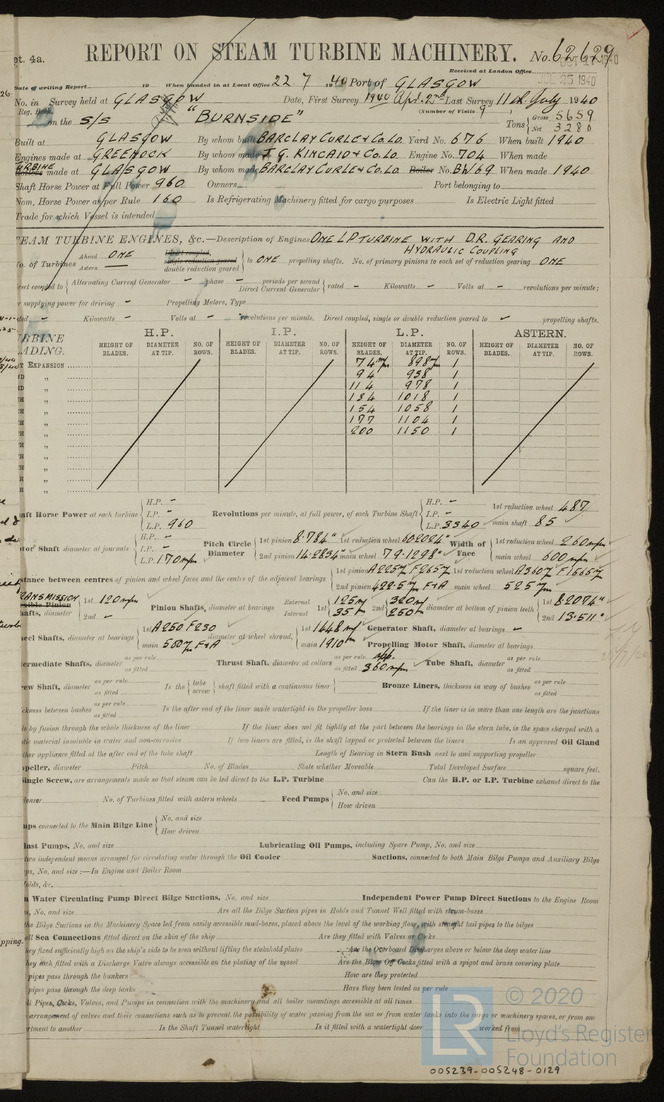 pt. 4a. REPORT ON STEAM TURBINE MACHINERY. No. 62629
Received at London Office
25 JUL 1940
Date of writing Report 19 When handed in at Local Office 22 7 1940 Port of GLASGOW
No. in Survey held at GLASGOW Date, First Survey 1940 Apl. 2nd Last Survey 11th July 1940
Reg. Book. (Number of Visits 9
on the S/S "BURNSIDE" Tons Gross 5659
Net 3280
Built at GLASGOW By whom built BARCLAY CURLE & Co. Ld. Yard No. 676 When built 1940
Engines made at GREENOCK By whom made J. G. KINCAID & Co. Ld. Engine No. 704 When made
TURBINE made at GLASGOW By whom made BARCLAY CURLE & Co. Ld. Boiler No. BW69 When made 1940
Shaft Horse Power at Full Power 960 Owners Port belonging to
Nom. Horse Power as per Rule 160 Is Refrigerating Machinery fitted for cargo purposes Is Electric Light fitted
Trade for which Vessel is intended
TEAM TURBINE ENGINES, &c.—Description of Engines ONE L P TURBINE WITH D.R. GEARING AND
HYDRAULIC COUPLING
No. of Turbines Ahead ONE direct coupled, single reduction geared to ONE propelling shafts. No. of primary pinions to each set of reduction gearing ONE
Astern — double reduction geared
rect coupled to Alternating Current Generator - phase - periods per second rated - Kilowatts - Volts at - revolutions per minute;
Direct Current Generator
r supplying power for driving - Propelling Motors, Type
ed - Kilowatts - Volts at - revolutions per minute. Direct coupled, single or double reduction geared to - propelling shafts.
TURBINE BLADING. H.P. I.P. L.P. ASTERN.
HEIGHT OF BLADES. DIAMETER AT TIP. NO. OF ROWS. HEIGHT OF BLADES. DIAMETER AT TIP. NO. OF ROWS. HEIGHT OF BLADES. DIAMETER AT TIP. NO. OF ROWS. HEIGHT OF BLADES. DIAMETER AT TIP. NO. OF ROWS.
ST EXPANSION 74 m/m 898 m/m 1
94 938 1
114 978 1
134 1018 1
154 1058 1
177 1104 1
200 1150 1
haft Horse Power at each turbine H.P. - Revolutions per minute, at full power, of each Turbine Shaft H.P. - 1st reduction wheel 487
I.P. - I.P. -
L.P. 960 L.P. 3340 main shaft 85
otor Shaft diameter at journals H.P. - Pitch Circle Diameter 1st pinion 8.784" 1st reduction wheel 60.2024" Width of Face 1st reduction wheel 260 m/m
I.P. -
L.P. 170 m/m 2nd pinion 14.2834" main wheel 79.1298" main wheel 600 m/m
istance between centres of pinion and wheel faces and the centre of the adjacent bearings 1st pinion 1st reduction wheel
2nd pinion 422.5 m/m F & A main wheel 525 m/m
TRANSMISSION Shafts, diameter 1st 120 m/m Pinion Shafts, diameter at bearings External 1st 125 m/m 2nd 320 m/m diameter at bottom of pinion teeth 1st 8.2074"
2nd - Internal 35 m/m 250 m/m 2nd 13.511"
heel Shafts, diameter at bearings 1st A 250 F 230 diameter at wheel shroud, 1st 1648 m/m Generator Shaft, diameter at bearings -
main 580 m/m F & A main 1910 m/m Propelling Motor Shaft, diameter at bearings
termediate Shafts, diameter as per rule Thrust Shaft, diameter at collars as per rule app. Tube Shaft, diameter as per rule
as fitted as fitted 360 m/m as fitted
rew Shaft, diameter as per rule Is the tube shaft fitted with a continuous liner Bronze Liners, thickness in way of bushes as per rule
as fitted screw as fitted
ckness between bushes as per rule Is the after end of the liner made watertight in the propeller boss If the liner is in more than one length are the junctions
as fitted
le by fusion through the whole thickness of the liner If the liner does not fit tightly at the part between the bearings in the stern tube, is the space charged with a
tic material insoluble in water and non-corrosive If two liners are fitted, is the shaft lapped or protected between the liners Is an approved Oil Gland
ther appliance fitted at the after end of the tube shaft Length of Bearing in Stern Bush next to and supporting propeller
peller, diameter Pitch No. of Blades State whether Moveable Total Developed Surface square feet.
Single Screw, are arrangements made so that steam can be led direct to the L.P. Turbine Can the H.P. or I.P. Turbine exhaust direct to the
denser No. of Turbines fitted with astern wheels Feed Pumps No. and size
How driven
mps connected to the Main Bilge Line No. and size
How driven
last Pumps, No. and size Lubricating Oil Pumps, including Spare Pump, No. and size
two independent means arranged for circulating water through the Oil Cooler Suctions, connected to both Main Bilge Pumps and Auxiliary Bilge
ps, No. and size:—In Engine and Boiler Room
Holds, &c.
n Water Circulating Pump Direct Bilge Suctions, No. and size Independent Power Pump Direct Suctions to the Engine Room
s, No. and size Are all the Bilge Suction pipes in Holds and Tunnel Well fitted with strum-boxes
the Bilge Suctions in the Machinery Space led from easily accessible mud-boxes, placed above the level of the working floor, with straight tail pipes to the bilges
ll Sea Connections fitted direct on the skin of the ship Are they fitted with Valves or Cocks
hey fixed sufficiently high on the ship's side to be seen without lifting the stokehold plates Are the Overboard Discharges above or below the deep water line
hey each fitted with a Discharge Valve always accessible on the plating of the vessel Are the Blow Off Cocks fitted with a spigot and brass covering plate
pipes pass through the bunkers How are they protected
pipes pass through the deep tanks Have they been tested as per rule
ll Pipes, Cocks, Valves, and Pumps in connection with the machinery and all boiler mountings accessible at all times
arrangement of valves and their connections such as to prevent the possibility of water passing from the sea or from water tanks into the cargo or machinery spaces, or from one
rtment to another Is the Shaft Tunnel watertight Is it fitted with a watertight door worked from
© 2020
Lloyd's Register
Foundation
005239-005248-0129